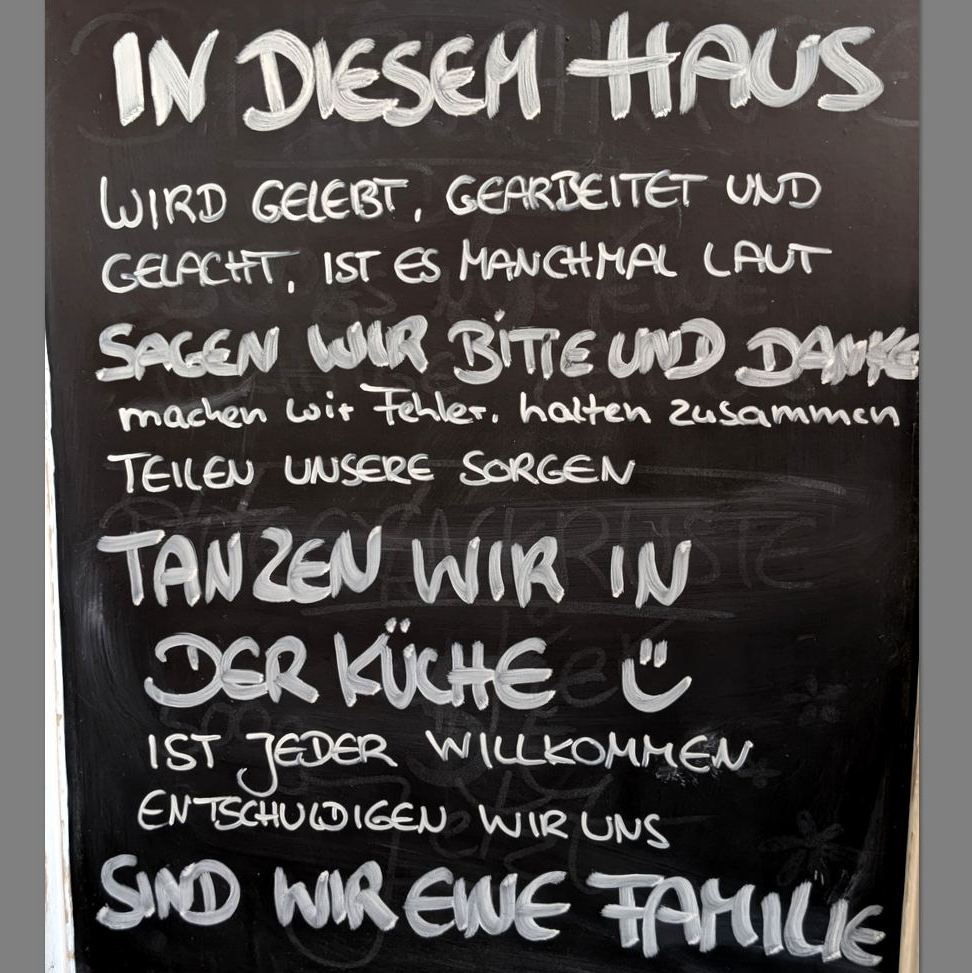 IN DIESEM HAUS
WIRD GELEBT, GEARBEITET UND
GELACHT, IST ES MANCHMAL LAUT
SAGEN WIR BITTE UND DANKE
machen wir Fehler, halten zusammen
TEILEN UNSERE SORGEN
TANZEN WIR IN
DER KÜCHE
IST JEDER WILLKOMMEN
ENTSCHULDIGEN WIR UNS
SIND WIR EINE FAMILIE